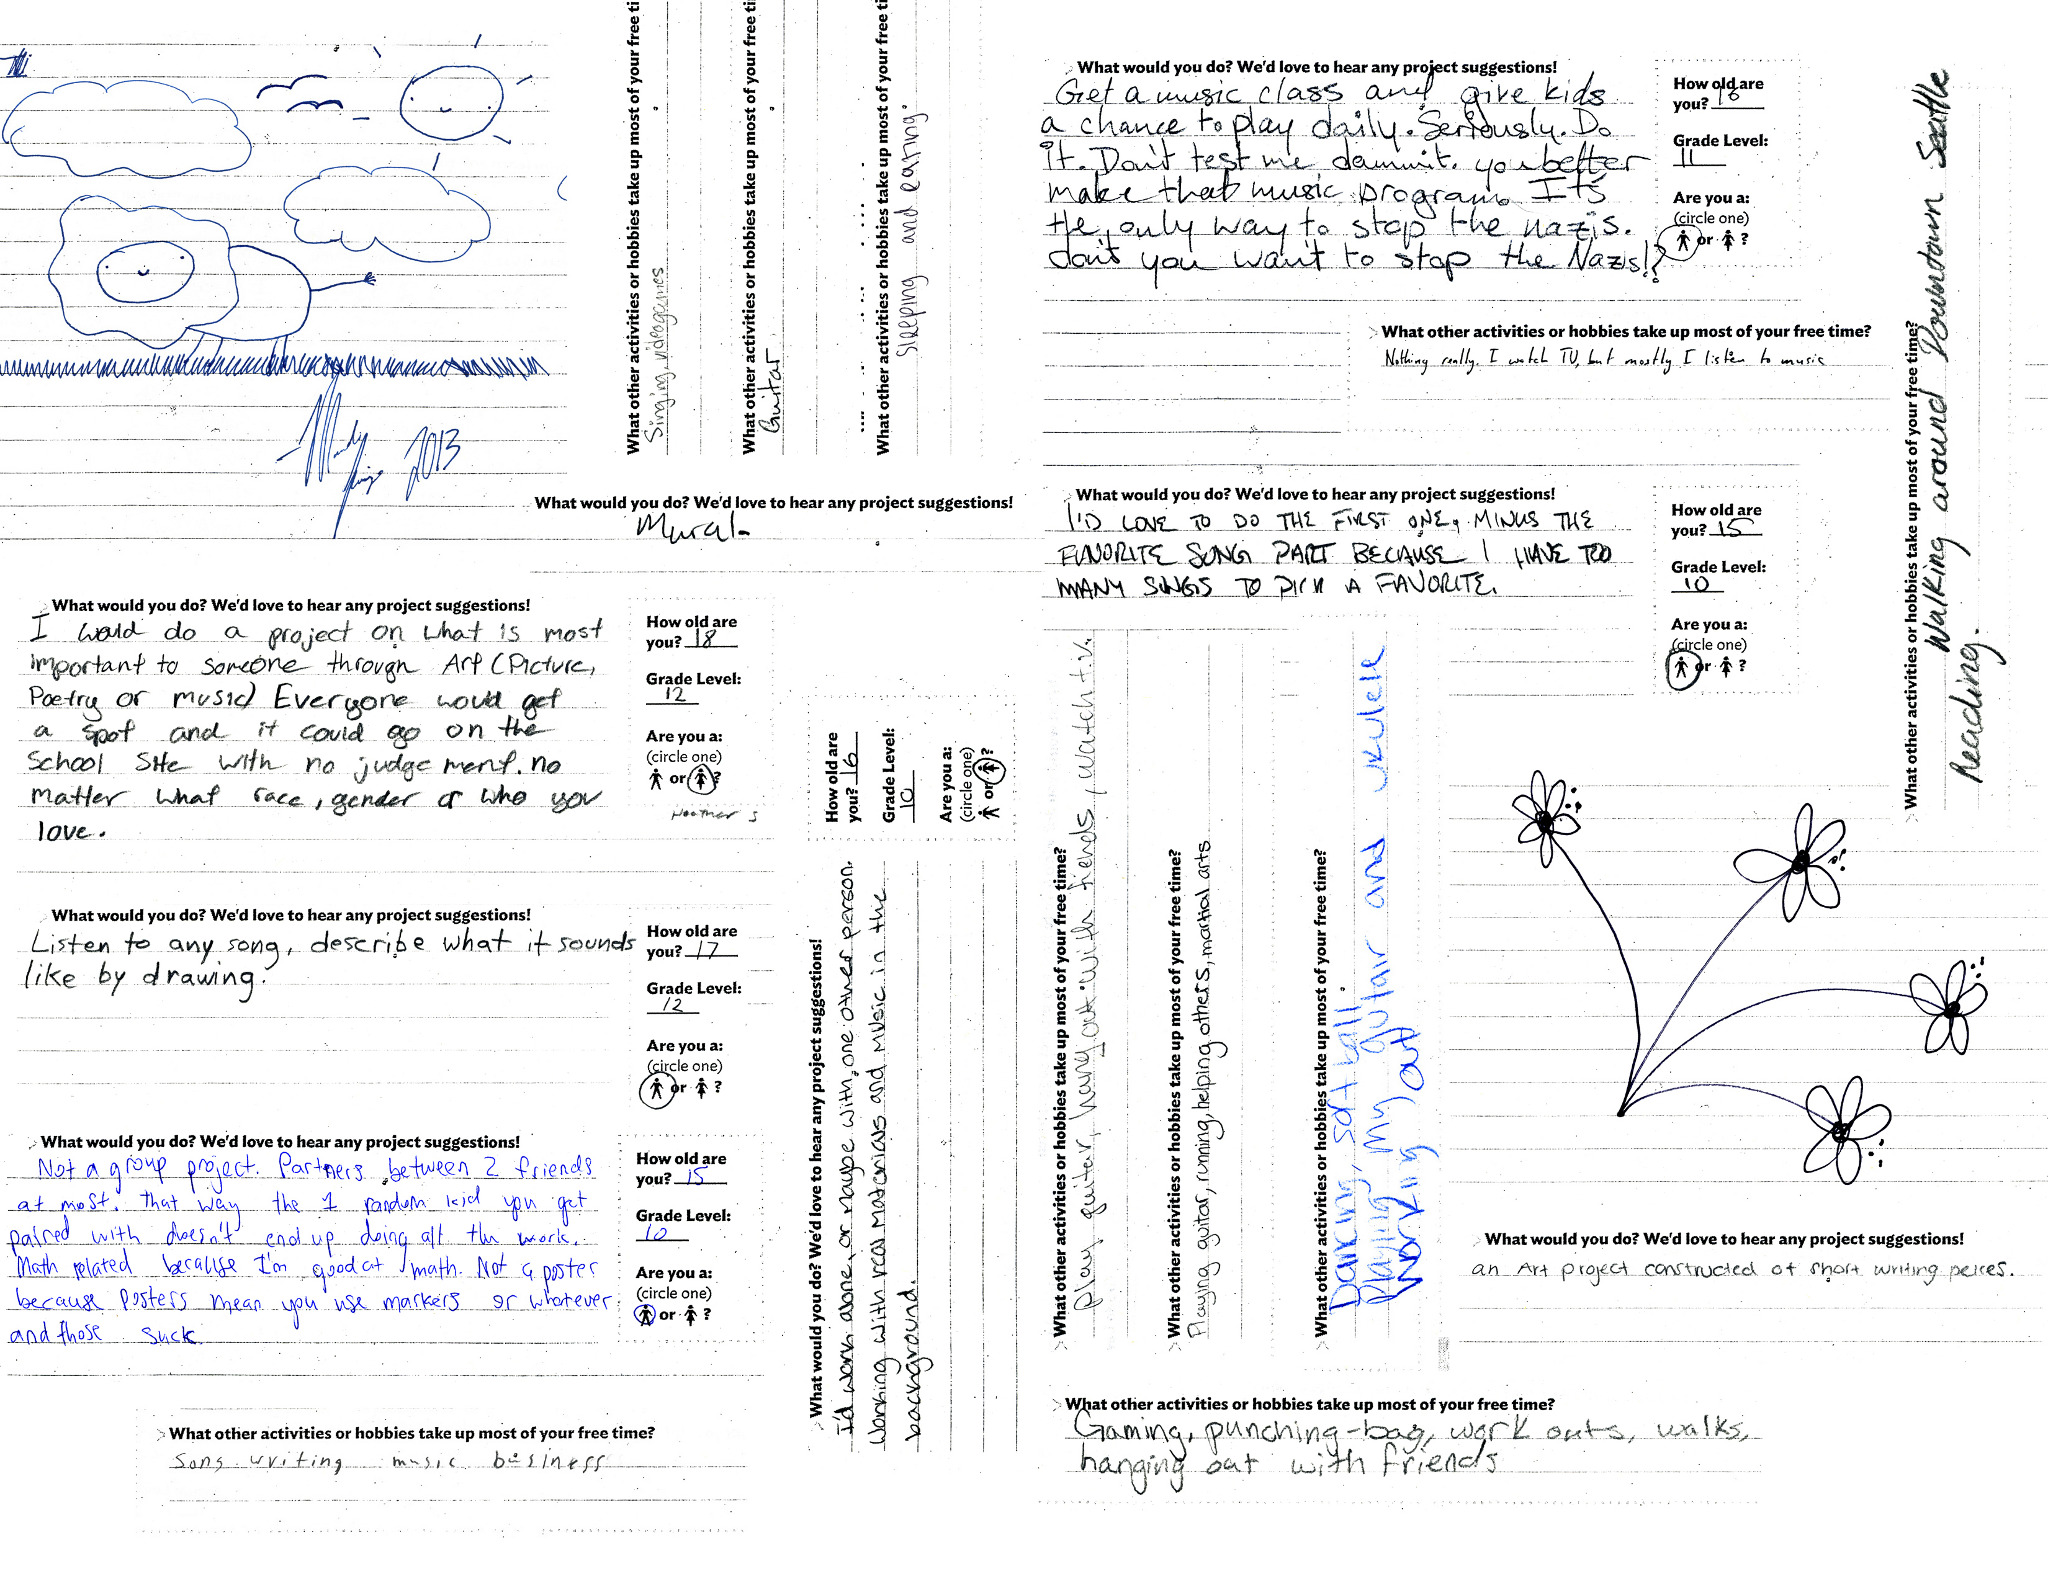 2013
What other activities or hobbies take up most of your free ti
Singing, videogames
What other activities or hobbies take up most of your free ti
Guitar
What other activities or hobbies take up most of your free ti
Sleeping and eating.
What would you do? We'd love to hear any project suggestions!
Mural
What would you do? We'd love to hear any project suggestions!
I would do a project on what is most
important to someone through Art (Picture,
Poetry or music) Everyone would get
a spot and it could go on the
School Site with no judgement. no
matter what race, gender or who you
love.
How old are
you? 18
Grade Level:
12
Are you a:
(circle one)
or ?
Heather S
What would you do? We'd love to hear any project suggestions!
Listen to any song, describe what it sounds
like by drawing.
How old are
you? 17
Grade Level:
12
Are you a:
(circle one)
or ?
What would you do? We'd love to hear any project suggestions!
Not a group project. Partners between 2 friends
at most. That way the 1 random kid you get
paired with doesn't end up doing all the work.
Math related because I'm good at math. Not a poster
because posters mean you use markers or whatever
and those suck
How old are
you? 15
Grade Level:
10
Are you a:
(circle one)
or ?
What other activities or hobbies take up most of your free time?
song writing music business
How old are
you? 16
Grade Level:
10
Are you a:
(circle one)
or ?
What would you do? We'd love to hear any project suggestions!
I'd work alone, or maybe with one other person.
Working with real materials and music in the
background.
What would you do? We'd love to hear any project suggestions!
Get a music class and give kids
a chance to play daily. Seriously. Do
it. Don't test me dammit. you better
make that music program. It's
the only way to stop the nazis.
don't you want to stop the Nazis!?
How old are
you? 16
Grade Level:
11
Are you a:
(circle one)
or ?
What other activities or hobbies take up most of your free time?
Nothing really. I watch TV, but mostly I listen to music
What other activities or hobbies take up most of your free time?
Walking around Downtown Seattle
Reading.
What would you do? We'd love to hear any project suggestions!
I'D LOVE TO DO THE FIRST ONE, MINUS THE
FAVORITE SONG PART BECAUSE I HAVE TOO
MANY SONGS TO PICK A FAVORITE.
How old are
you? 15
Grade Level:
10
Are you a:
(circle one)
or ?
What other activities or hobbies take up most of your free time?
play guiter, hang out with fiends, watch t.v.
What other activities or hobbies take up most of your free time?
Playing guitar, running, helping others, martial arts
What other activities or hobbies take up most of your free time?
Dancing, soft ball,
Playing my guitair and ukulele
working out
What would you do? We'd love to hear any project suggestions!
an Art project constructed of short writing peices.
What other activities or hobbies take up most of your free time?
Gaming, punching-bag, work outs, walks,
hanging out with friends